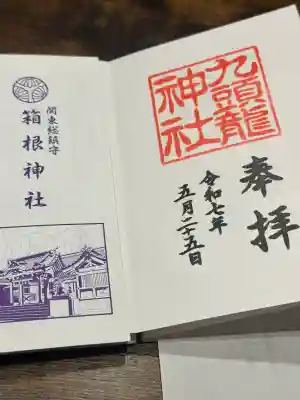 奉拝
九頭龍
神社
令和七年
五月二十五日
関東総鎮守
箱根神社